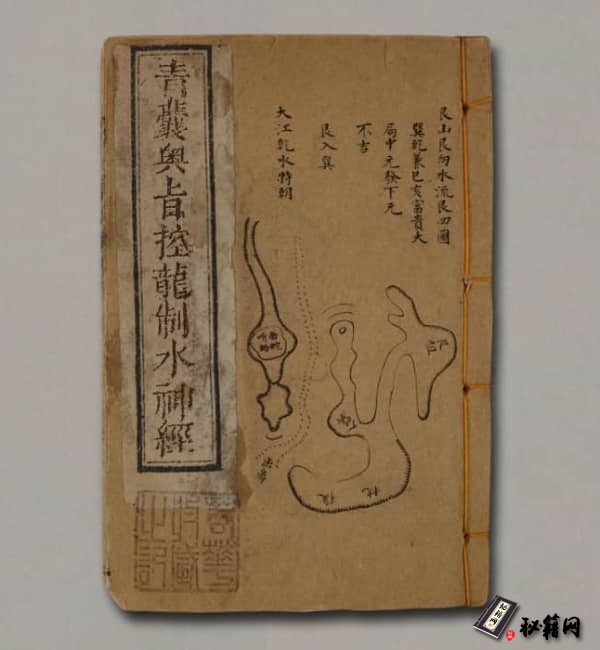 青囊奥旨控龍制水神經
艮山艮向水流艮四圖
巽乾兼巳亥富貴大
局中元發下元
不吉
艮入巽
大江乾水特朝
秘籍网